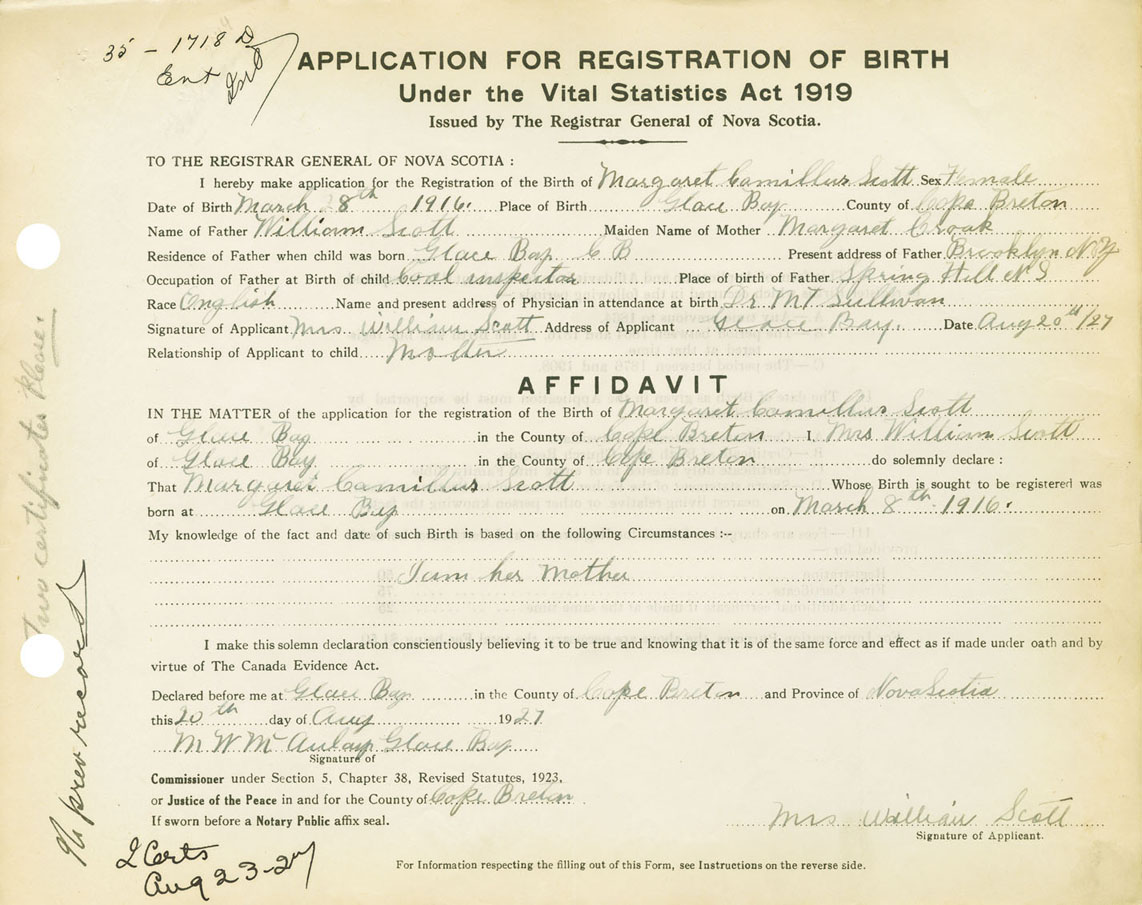 35 - 1718 D
Ent
APPLICATION FOR REGISTRATION OF BIRTH
Under the Vital Statistics Act 1919
Issued by The Registrar General of Nova Scotia.
TO THE REGISTRAR GENERAL OF NOVA SCOTIA :
I hereby make application for the Registration of the Birth of Margaret Camillus Scott Sex Female
Date of Birth March 28th 1916. Place of Birth Glace Bay County of Cape Breton
Name of Father William Scott Maiden Name of Mother Margaret Croak
Residence of Father when child was born Glace Bay C B Present address of Father Brooklyn N.Y
Occupation of Father at Birth of child Coal inspector Place of birth of Father Spring Hill N S
Race English Name and present address of Physician in attendance at birth Dr. MT Sullivan
Signature of Applicant Mrs William Scott Address of Applicant Glace Bay. Date Aug 20th/27
Relationship of Applicant to child Mother
AFFIDAVIT
IN THE MATTER of the application for the registration of the Birth of Margaret Camillus Scott
of Glace Bay in the County of Cape Breton I, Mrs William Scott
of Glace Bay in the County of Cape Breton do solemnly declare :
That Margaret Camillus Scott Whose Birth is sought to be registered was
born at Glace Bay on March 8th 1916.
My knowledge of the fact and date of such Birth is based on the following Circumstances :--
I am her Mother
I make this solemn declaration conscientiously believing it to be true and knowing that it is of the same force and effect as if made under oath and by
virtue of The Canada Evidence Act.
Declared before me at Glace Bay in the County of Cape Breton and Province of Nova Scotia
this 20th day of Aug 1927
M W McAulay Glace Bay
Signature of
Commissioner under Section 5, Chapter 38, Revised Statutes, 1923,
or Justice of the Peace in and for the County of Cape Breton
If sworn before a Notary Public affix seal.
Mrs William Scott
Signature of Applicant.
For Information respecting the filling out of this Form, see Instructions on the reverse side.
2 Certs
Aug 23-27
Two certificates Please.
No prev record